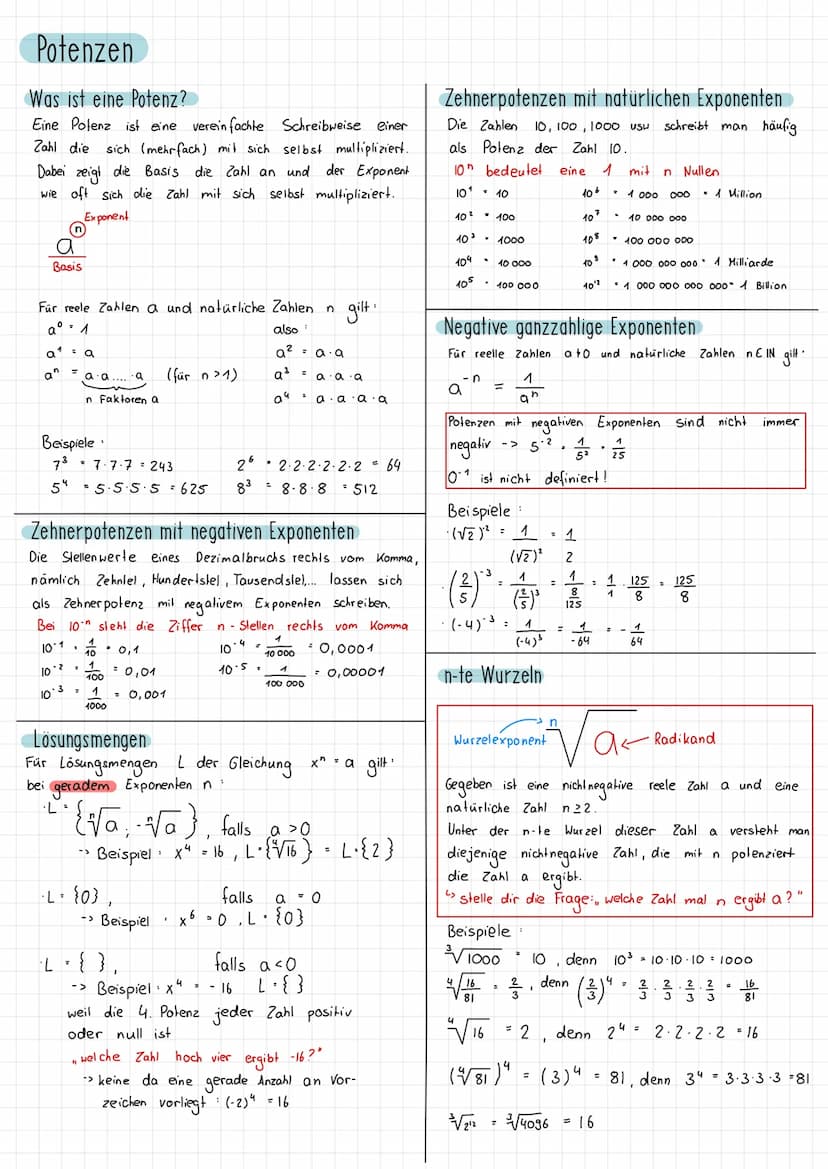 Potenzen
Was ist eine Potenz?
Eine Potenz ist eine vereinfachte Schreibweise einer
Zahl die sich (mehrfach) mit sich selbst multipliziert.
Dabei zeigt die Basis die Zahl an und der Exponent
wie oft sich die Zahl mit sich selbst multipliziert.
Exponent
aⁿ
Basis
Für reele Zahlen a und natürliche Zahlen n gilt:
a⁰ = 1 also:
a¹ = a a² = a·a
aⁿ = a·a....·a (für n>1) a³ = a·a·a
n Faktoren a a⁴ = a·a·a·a
Beispiele:
7³ = 7·7·7 = 243 2⁶ = 2·2·2·2·2·2 = 64
5⁴ = 5·5·5·5 = 625 8³ = 8·8·8 = 512
Zehnerpotenzen mit negativen Exponenten
Die Stellenwerte eines Dezimalbruchs rechts vom Komma,
nämlich Zehntel, Hundertstel, Tausendstel,... lassen sich
als Zehnerpotenz mit negativem Exponenten schreiben.
Bei 10⁻ⁿ steht die Ziffer n-Stellen rechts vom Komma
10⁻¹ = 1/10 = 0,1 10⁻⁴ = 1/10 000 = 0,0001
10⁻² = 1/100 = 0,01 10⁻⁵ = 1/100 000 = 0,00001
10⁻³ = 1/1000 = 0,001
Lösungsmengen
Für Lösungsmengen L der Gleichung xⁿ = a gilt:
bei geradem Exponenten n:
·L = {ⁿ√a ; -ⁿ√a }, falls a >0
-> Beispiel: x⁴ = 16, L={⁴√16 } = L={2}
·L = {0}, falls a = 0
-> Beispiel: x⁶ = 0, L = {0}
·L = { }, falls a<0
-> Beispiel: x⁴ = -16 L = { }
weil die 4. Potenz jeder Zahl positiv
oder null ist
„welche Zahl hoch vier ergibt -16?"
-> keine da eine gerade Anzahl an Vor-
zeichen vorliegt: (-2)⁴ = 16
Zehnerpotenzen mit natürlichen Exponenten
Die Zahlen 10, 100, 1000 usw schreibt man häufig
als Potenz der Zahl 10.
10ⁿ bedeutet eine 1 mit n Nullen
10¹ = 10 10⁶ = 1 000 000 = 1 Million
10² = 100 10⁷ = 10 000 000
10³ = 1000 10⁸ = 100 000 000
10⁴ = 10 000 10⁹ = 1 000 000 000 = 1 Milliarde
10⁵ = 100 000 10¹² = 1 000 000 000 000 = 1 Billion
Negative ganzzahlige Exponenten
Für reelle Zahlen a≠0 und natürliche Zahlen n∈ℕ gilt:
a⁻ⁿ = 1/aⁿ
Potenzen mit negativen Exponenten sind nicht immer
negativ -> 5⁻² = 1/5² = 1/25
0⁻¹ ist nicht definiert!
Beispiele:
·(√2)⁻² = 1/(√2)² = 1/2
·(2/5)⁻³ = 1/(2/5)³ = 1/(8/125) = 1/1 · 125/8 = 125/8
·(-4)⁻³ = 1/(-4)³ = 1/-64 = -1/64
n-te Wurzeln
Wurzelexponent ⁿ√a Radikand
Gegeben ist eine nichtnegative reele Zahl a und eine
natürliche Zahl n≥2.
Unter der n-te Wurzel dieser Zahl a versteht man
diejenige nichtnegative Zahl, die mit n potenziert
die Zahl a ergibt.
↳ stelle dir die Frage: „welche Zahl mal n ergibt a?"
Beispiele:
³√1000 = 10, denn 10³ = 10·10·10 = 1000
⁴√16/81 = 2/3, denn (2/3)⁴ = 2/3 · 2/3 · 2/3 · 2/3 = 16/81
⁴√16 = 2, denn 2⁴ = 2·2·2·2 = 16
(⁴√81)⁴ = (3)⁴ = 81, denn 3⁴ = 3·3·3·3 = 81
³√2¹² = ³√4096 = 16